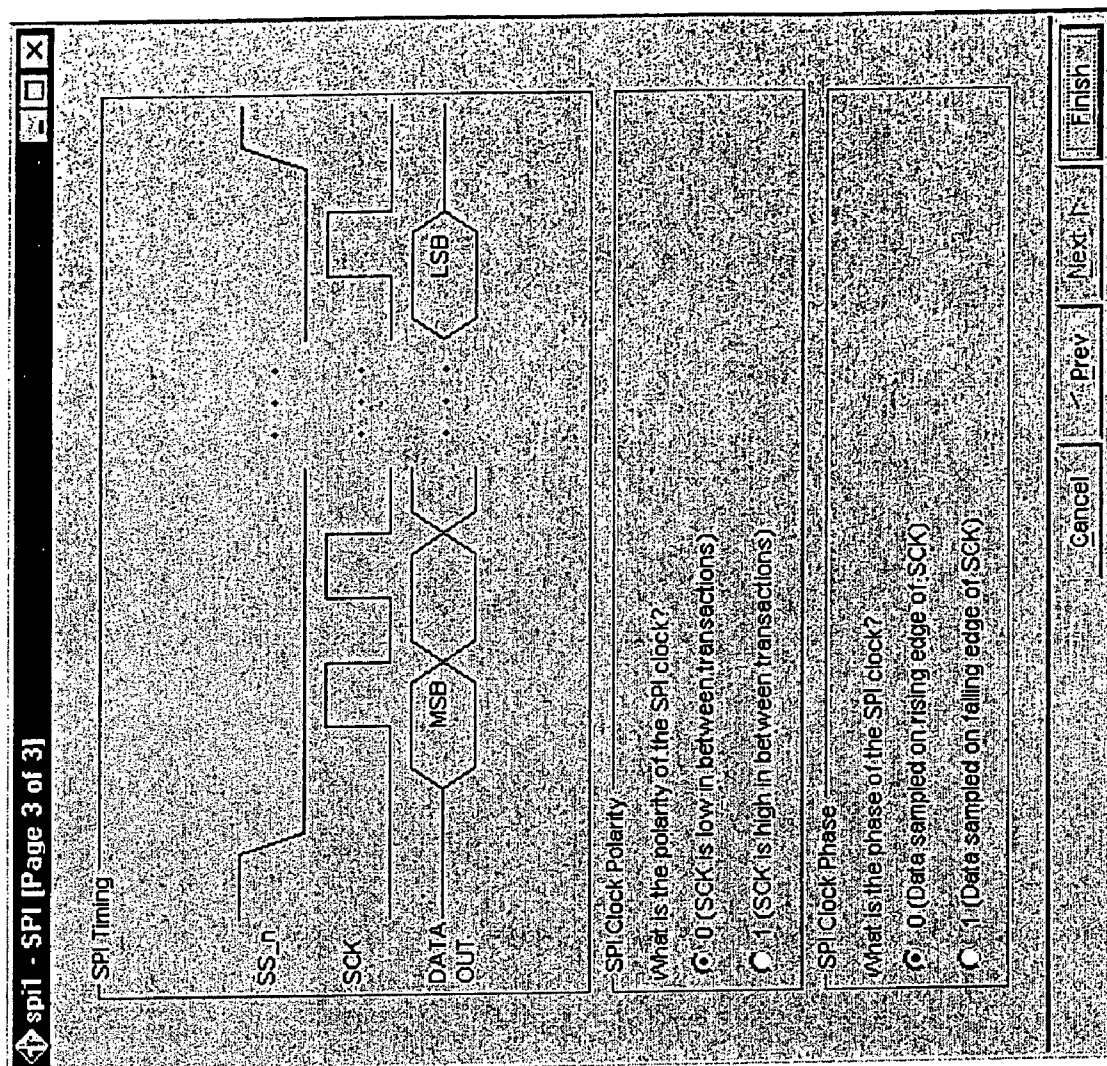 spi1 - SPI [Page 3 of 3]
SPI Timing
SS_n
SCK
DATA
OUT
MSB
LSB
SPI Clock Polarity
What is the polarity of the SPI clock?
0 (SCK is low in between transactions)
1 (SCK is high in between transactions)
SPI Clock Phase
What is the phase of the SPI clock?
0 (Data sampled on rising edge of SCK)
1 (Data sampled on falling edge of SCK)
Cancel
< Prev
Next >
Finish